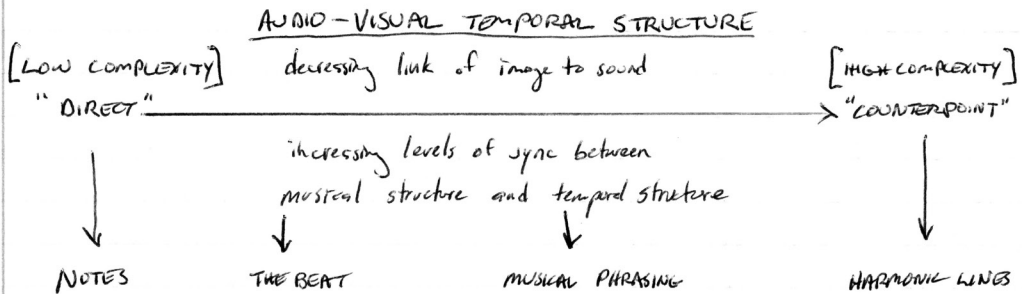 AUDIO-VISUAL TEMPORAL STRUCTURE
[LOW COMPLEXITY] decressing link of image to sound [HIGH COMPLEXITY]
"DIRECT" "COUNTERPOINT"
increasing levels of sync between
musical structure and temporal structure
NOTES THE BEAT MUSICAL PHRASING HARMONIC LINES